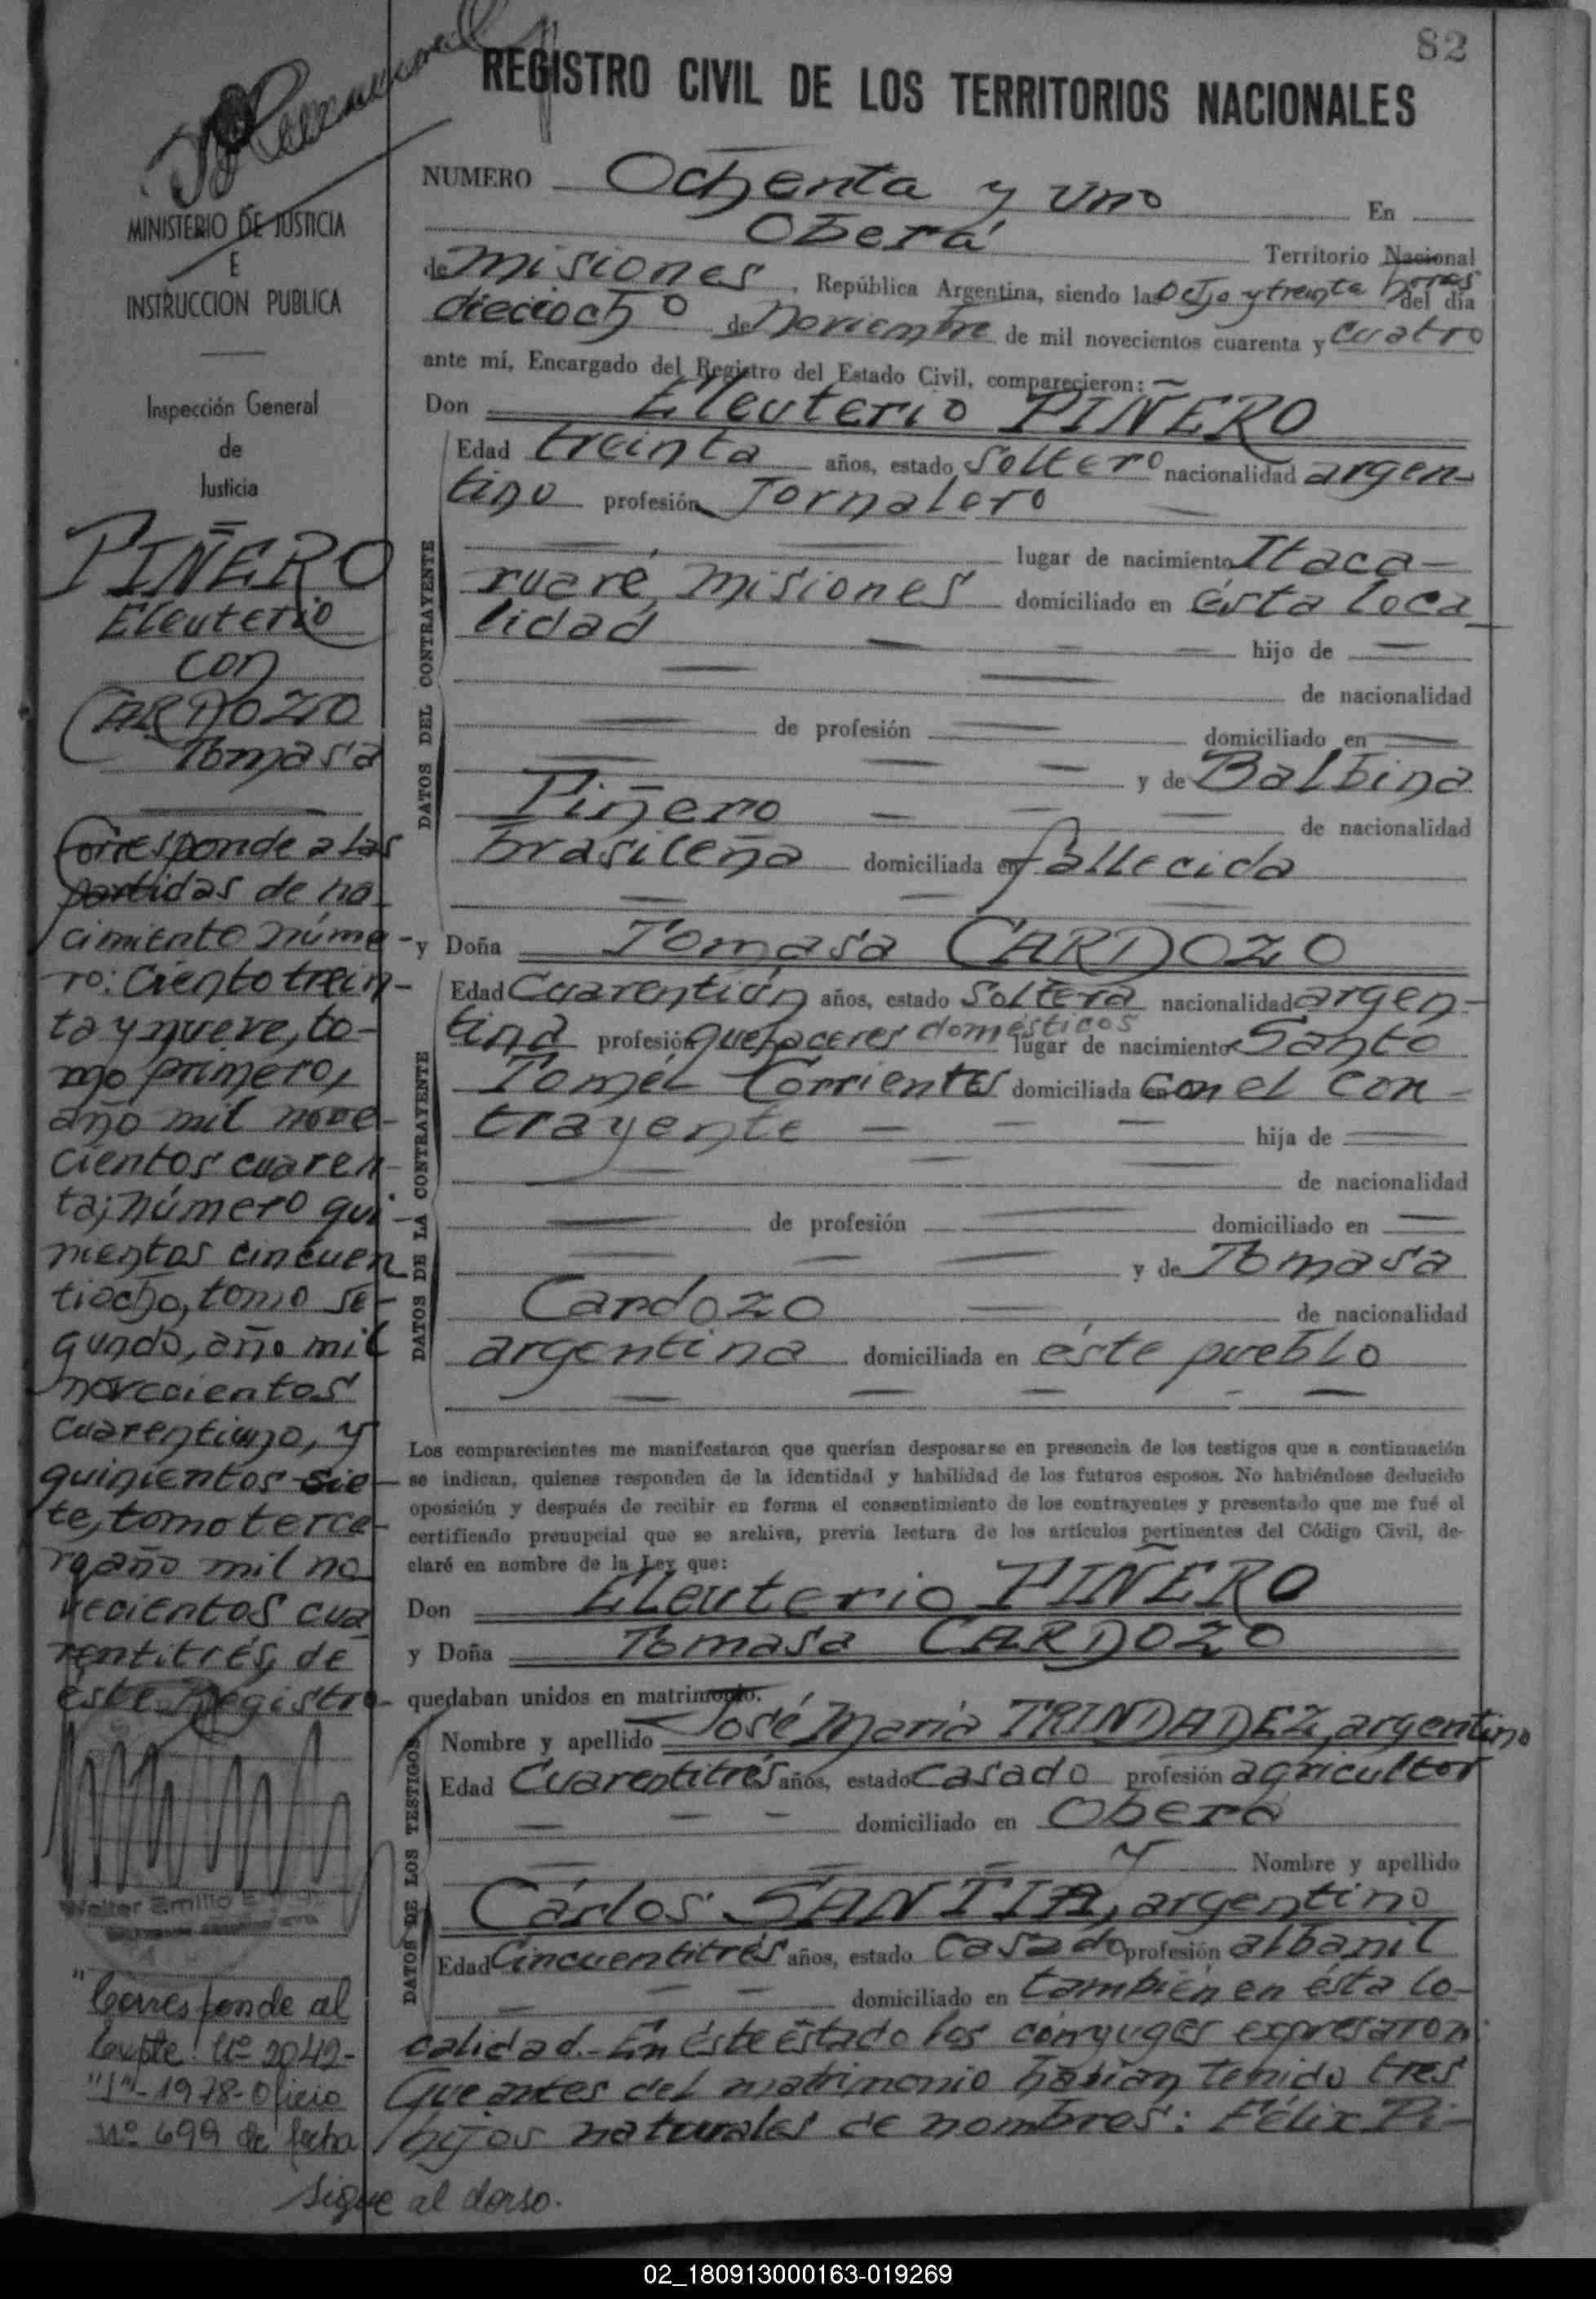 82
REGISTRO CIVIL DE LOS TERRITORIOS NACIONALES
NUMERO Ochenta y Uno En
Oberá Territorio Nacional
de Misiones, República Argentina, siendo las Ocho y treinta horas del día
dieciocho de Noviembre de mil novecientos cuarenta y cuatro
ante mí, Encargado del Registro del Estado Civil, comparecieron:
Don Eleuterio PIÑERO
Edad treinta años, estado Soltero nacionalidad argen-
tino profesión Jornalero
lugar de nacimiento Itaca-
ruaré, Misiones domiciliado en ésta loca
lidad hijo de
de nacionalidad
de profesión domiciliado en
y de Balbina
Piñero de nacionalidad
brasileña domiciliada en fallecida
DATOS DEL CONTRAYENTE
y Doña Tomasa CARDOZO
Edad Cuarentiún años, estado Soltera nacionalidad argen-
tina profesión quehaceres domésticos lugar de nacimiento Santo
Tomé Corrientes domiciliada en con el con-
trayente hija de
de nacionalidad
de profesión domiciliado en
y de Tomasa
Cardozo de nacionalidad
argentina domiciliada en éste pueblo
DATOS DE LA CONTRAYENTE
Los comparecientes me manifestaron que querían desposarse en presencia de los testigos que a continuación
se indican, quienes responden de la identidad y habilidad de los futuros esposos. No habiéndose deducido
oposición y después de recibir en forma el consentimiento de los contrayentes y presentado que me fué el
certificado prenupcial que se archiva, previa lectura de los artículos pertinentes del Código Civil, de-
claré en nombre de la Ley que:
Don Eleuterio PIÑERO
y Doña Tomasa CARDOZO
quedaban unidos en matrimonio.
Nombre y apellido José María TRINDADEZ, argentino
Edad Cuarentitrés años, estado Casado profesión agricultor
domiciliado en Oberá
y Nombre y apellido
Cárlos SANTIA, argentino
Edad Cincuentitrés años, estado Casado profesión albañil
domiciliado en también en ésta lo-
DATOS DE LOS TESTIGOS
calidad.- En éste estado los cónyuges expresaron
Que antes del matrimonio habían tenido tres
hijos naturales de nombres: Félix Pi-
MINISTERIO DE JUSTICIA
E
INSTRUCCION PUBLICA
Inspección General
de
Justicia
PIÑERO
Eleuterio
con
CARDOZO
Tomasa
Corresponde a las
partidas de na
cimiento núme-
ro: Ciento trein-
ta y nueve, to-
mo primero,
año mil nove-
cientos cuaren-
ta; número qui-
nientos cincuen
tiocho, tomo se-
gundo, año mil
novecientos
cuarentiuno, y
quinientos sie-
te, tomo terce-
ro año mil no
vecientos cua
rentitrés, de
este Registro
Walter Emilio
"Corresponde al
Expte. Nº 2042-
"I"- 1978- Oficio
Nº 699 de fecha
Sigue al dorso.
02_180913000163-019269